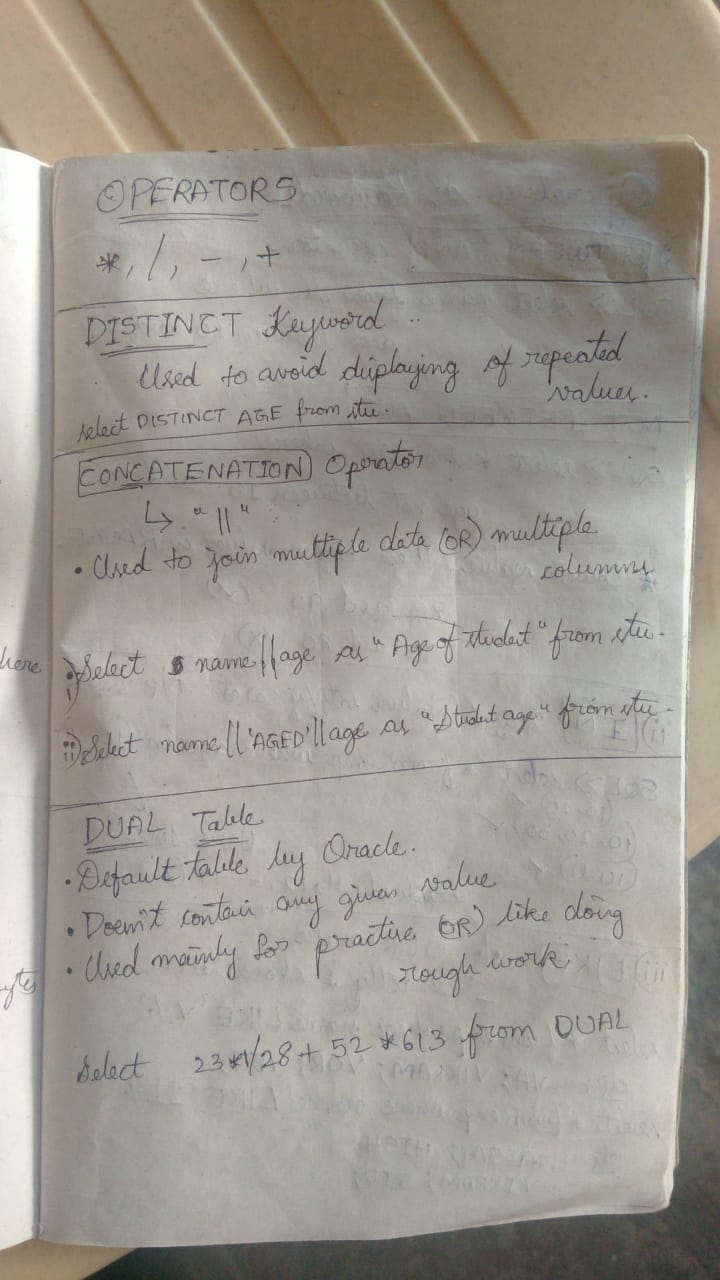 OPERATORS
*, /, -, +
DISTINCT Keyword
Used to avoid displaying of repeated
values.
select DISTINCT AGE from stu.
CONCATENATION Operator
↳ "||"
• Used to join multiple data (OR) multiple
columns
here
i) Select name||age as "Age of student" from stu.
ii) Select name||'AGED'||age as "Student age" from stu.
DUAL Table
• Default table by Oracle.
• Doesn't contain any given value
• Used mainly for practise (OR) like doing
rough work.
Select 23*1/28 + 52 * 613 from DUAL